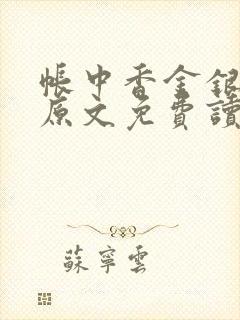 帳中香金銀
原文免費讀
蘇寧雲